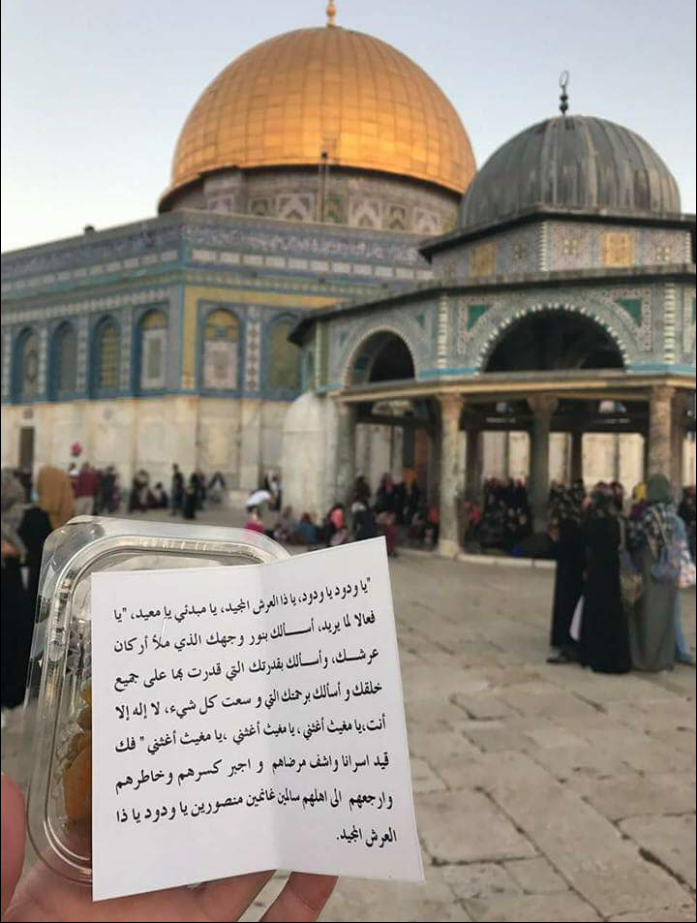 "يا ودود يا ودود، يا ذا العرش المجيد، يا مبدئي يا معيد، "يا
فعالا لما يريد، أســـألك بنور وجهك الذي ملأ أركان
عرشــك، وأســألك بقدرتك التي قدرت بها على جميع
خلقك و أسألك برحمتك التي و سعت كل شيء، لا إله إلا
أنت، يا مغيث أغثني، يا مغيث أغثني ،يا مغيث أغثني" فك
قيد اسرانا واشف مرضاهم و اجبر كسرهم وخاطرهم
وارجعهم الى اهلهم سالمين غانمين منصورين يا ودود يا ذا
العرش المجيد.